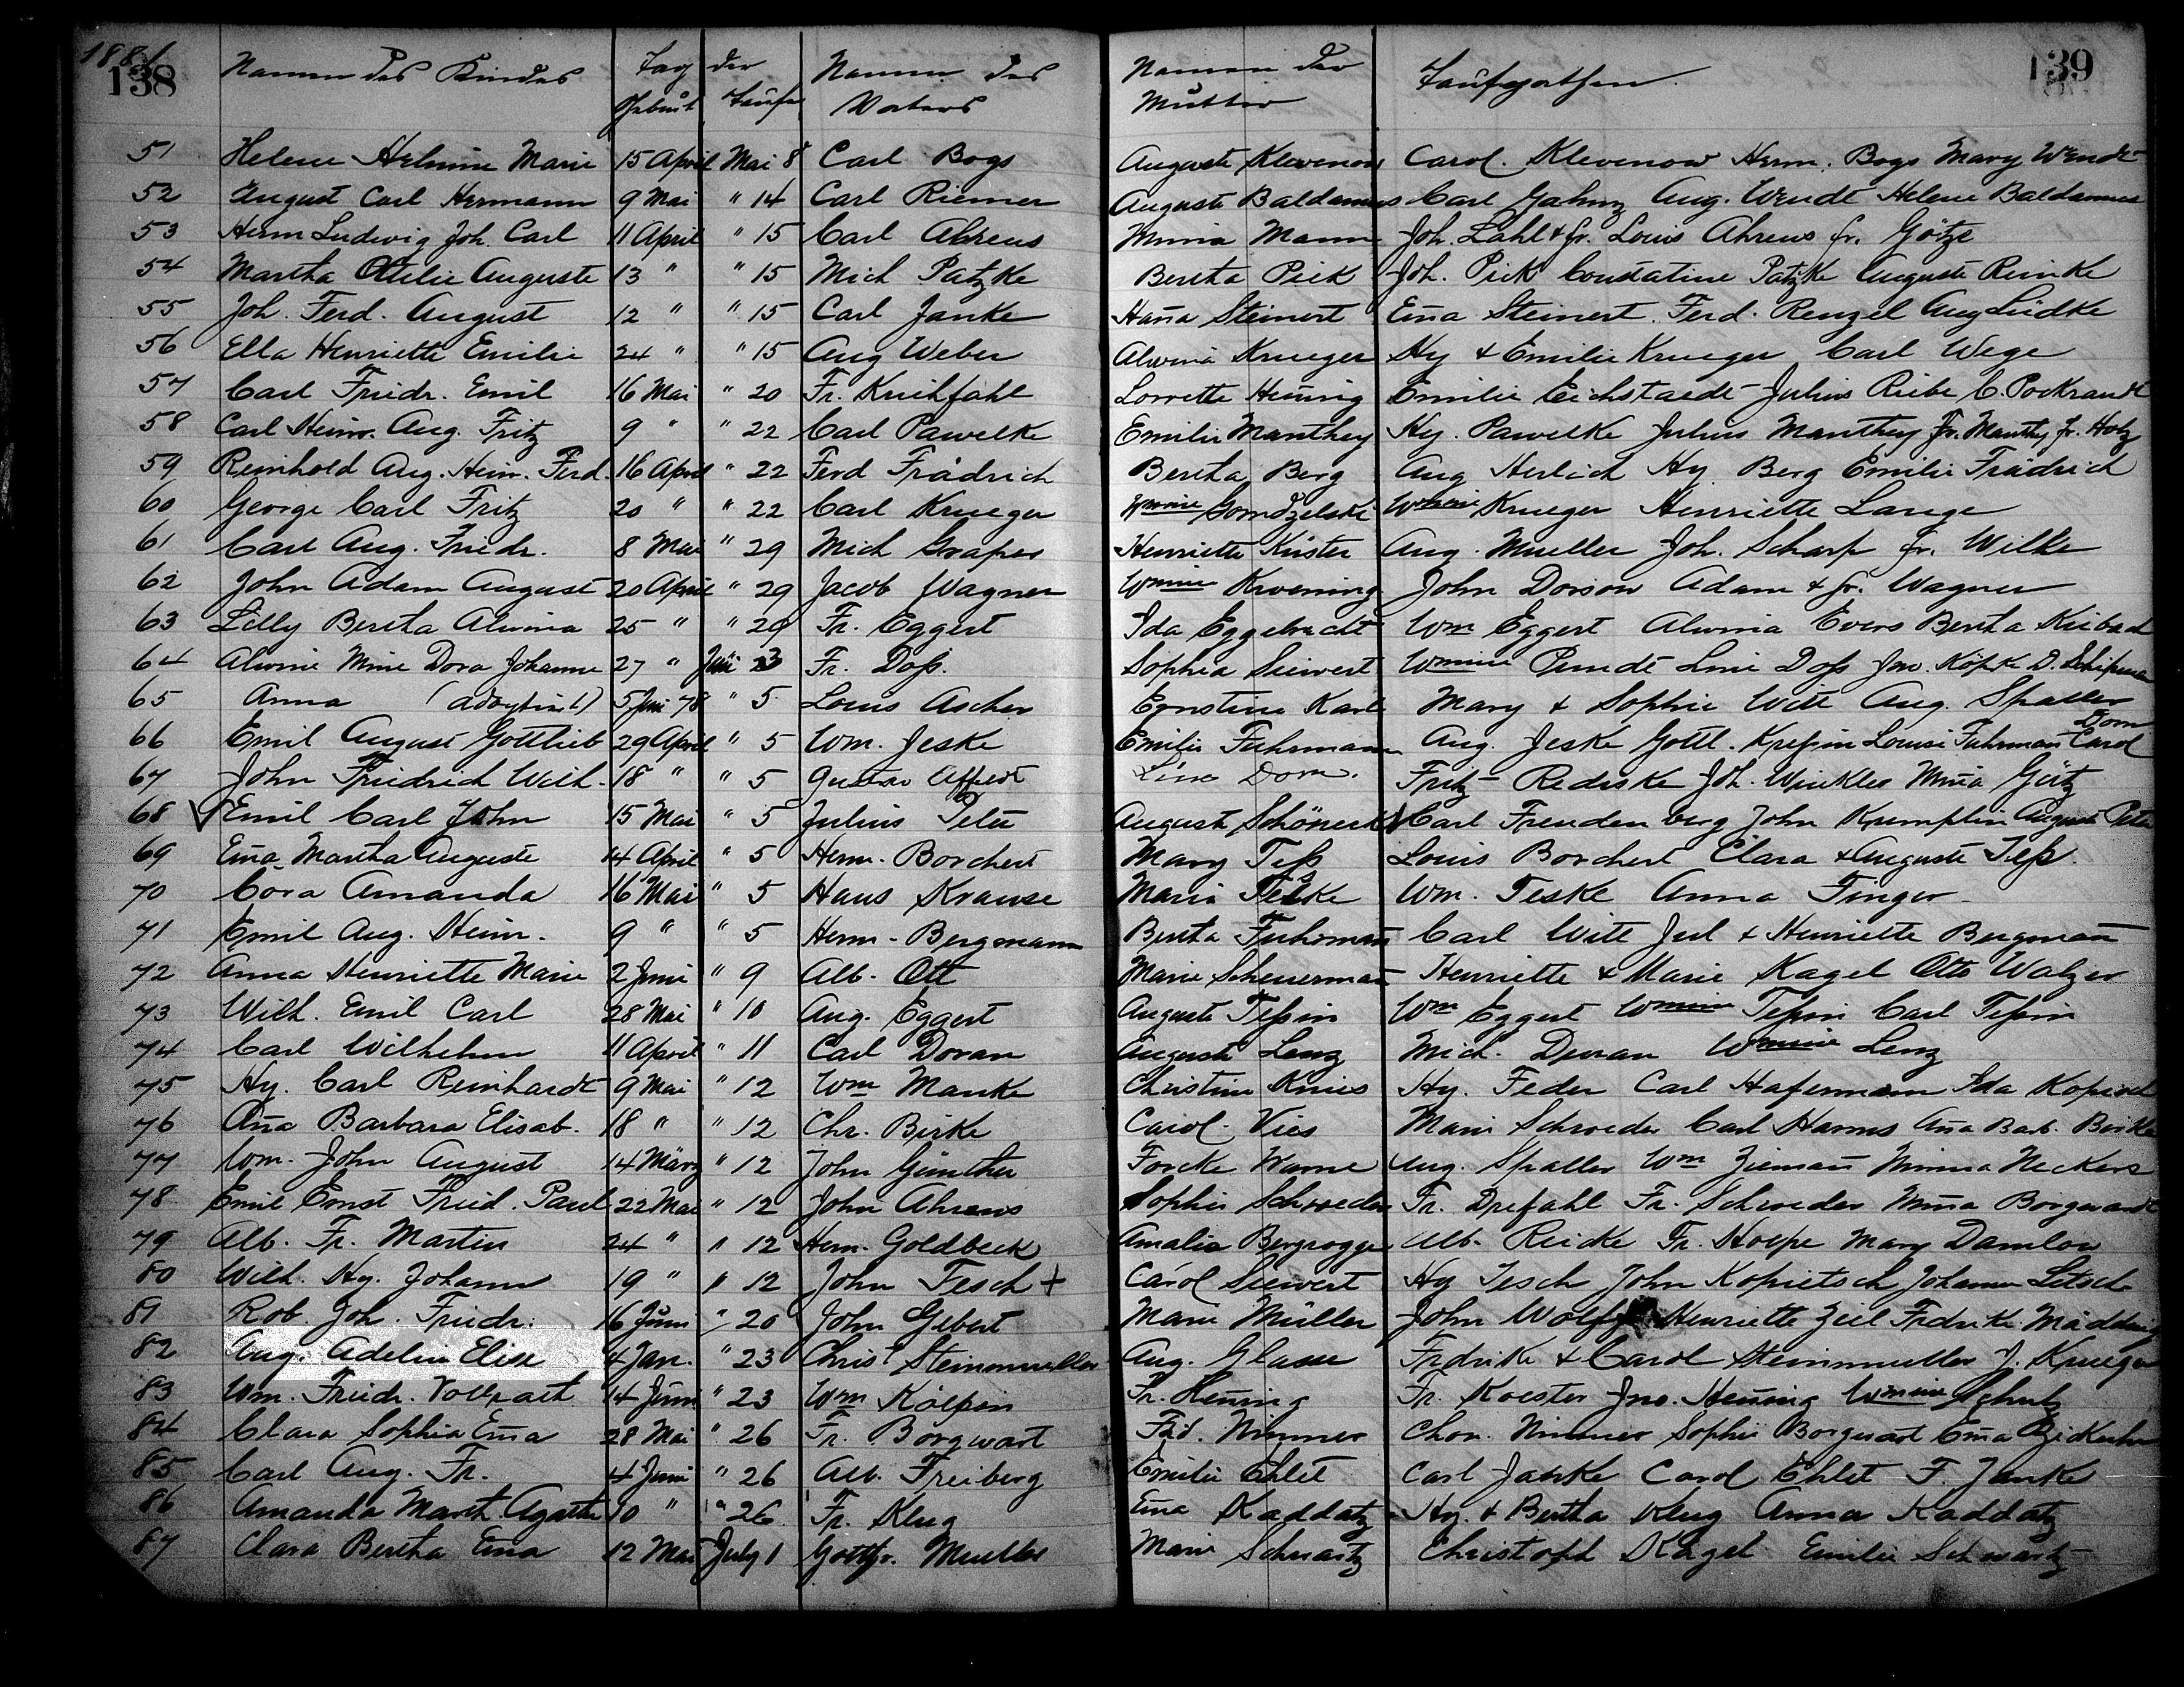 1881
138 139
Namen des Kindes Tag der Namen des Namen der Taufpathen
Geburt Taufe Vaters Mutter
51 Helene Helmine Marie 15 April Mai 8 Carl Bogs Auguste Klevenow Carol. Klevenow Herm. Bogs Mary Wendt
52 August Carl Hermann 9 Mai " 14 Carl Riemer Auguste Baldamus Carl Aug. Wendt Helene Baldamus
53 Herm Ludwig Joh. Carl 11 April " 15 Carl Ahrens Minna Mann Joh. Lahl & fr. Louis Ahrens fr. Götze
54 Martha Ottilie Auguste 13 " " 15 Mich Patzke Bertha Piek Joh. Piek Constatine Patzke Auguste Rinke
55 Joh. Ferd. August 12 " " 15 Carl Janke Hana Steinert Ema Steinert. Ferd. Renzel Aug Lüdke
56 Ella Henriette Emilie 24 " " 15 Aug Weber Alwina Krueger Hy & Emilie Krueger Carl Wege
57 Carl Friedr. Emil 16 Mai " 20 Fr. Knihfahl Lorrette Hennig Emilie Eichstaedt Julius Riebe C. Pockrandt
58 Carl Heinr. Aug. Fritz 9 " " 22 Carl Pawelke Emilie Manthey Hy. Pawelke Julius Manthey Fr. Manthy fr. Holz
59 Reinhold Aug. Hein. Ferd. 16 April " 22 Ferd Frädrich Bertha Berg Aug Herlich Hy. Berg Emilie Frädrich
60 George Carl Fritz 20 " " 22 Carl Krueger Wmine Gomdzelski Wmine Krueger Henriette Lange
61 Carl Aug. Friedr. 8 Mai " 29 Mich Graper Henriette Küster Aug. Mueller Joh. Scharp fr. Wilke
62 John Adam August 20 April " 29 Jacob Wagner Wmine Kroening John Dorsow Adam & fr. Wagner
63 Lilly Bertha Alwina 25 " " 29 Fr. Eggert Ida Eggebrecht Wm Eggert Alwina Evers Bertha
64 Alwine Mine Dora Johanne 27 " Juni 3 Fr. Doss. Sophia Siewert Wmine Pundt Line Doss Jno. Köpke D.
65 Anna (adoptirt) 5 Juni 78 " 5 Louis Ascher Ernstine Karle Mary & Sophie Witt Aug. Staller
66 Emil August Gottlieb 29 April " 5 Wm. Jeske Emilie Fuhrmann Aug. Jeske Gottl. Krepin Louise Fuhrman Carol Dorn
67 John Friedrich Wilh. 18 " " 5 Gustav Affeldt Line Dorn. Fritz Rediske Joh. Winkler Mina Görtz
68 Emil Carl John 15 Mai " 5 Julius Peter August Schönerk Carl Freudenberg John Krumplin August Peter
69 Ema Martha Auguste 14 April " 5 Herm. Borchert Mary Tess Louis Borchert Clara & Auguste Tess.
70 Cora Amanda 16 Mai " 5 Hans Krause Maria Teske Wm. Teske Anna Finger
71 Emil Aug. Heinr. 9 " " 5 Herm. Bergmann Bertha Fuhrman Carl Witt Jul & Henriette Bergman
72 Anna Henriette Marie 2 Juni " 9 Alb. Ott Marie Scheuerman Henriette & Marie Kagel Otto Walzer
73 Wilh. Emil Carl 28 Mai " 10 Aug. Eggert Auguste Tessin Wm Eggert Wmine Tessin Carl Tessin
74 Carl Wilhelm 11 April " 11 Carl Doran Auguste Lenz Mich. Duran Wmine Lenz
75 Hy. Carl Reinhardt 9 Mai " 12 Wm Manke Christine Knies Hy. Feder Carl Hafermann Ida
76 Ana Barbara Elisab. 18 " " 12 Chr. Birke Carol. Vies Marie Schroeder Carl Harms Ana Barb. Birke
77 Wm. John August 14 März " 12 John Günther Forcke Warne Aug. Staller Wm Zieman Minna Neckers
78 Emil Ernst Fried. Paul 22 Mai " 12 John Ahrens Sophie Schroeder Fr. Drefahl Fr. Schroeder Mina Borgwardt
79 Alb. Fr. Martin 24 " " 12 Herm. Goldbeck Amalia Bergrogge Alb. Reicke Fr. Hoepe Mary Damlow
80 Wilh. Hy. Johann 19 " " 12 John Tesch + Carol Siewert Hy Tesch John Kopietsch Johann Letsch
81 Rob. Joh. Friedr. 16 Juni " 20 John Gebert Marie Müller John Wolff Henriette Ziel Fredrike
82 Aug. Adeline Elise 4 Jan. " 23 Christ Steinmueller Aug. Glaser Fredrike & Carol Steinmueller J. Krueger
83 Wm. Friedr. Vollrath 14 Juni " 23 Wm Kölpin Fr. Hennig Fr. Koester Jno. Hennig Wmine Schultz
84 Clara Sophia Ema 28 Mai " 26 Fr. Borgwart Frid. Nimmer Chr. Nimmer Sophie Borgwart Ema
85 Carl Aug. Fr. 4 Juni " 26 Alb. Freiberg Emilie Ehlet Carl Janke Carol Ehlet F. Janke
86 Amanda Marth. Agathe 10 " " 26 Fr. Klug Ema Kaddatz Hy. & Bertha Klug Anna Kaddatz
87 Clara Bertha Ema 12 Mai July 1 Gottfr. Mueller Marie Schwartz Christoph Kagel Emilie Schwartz